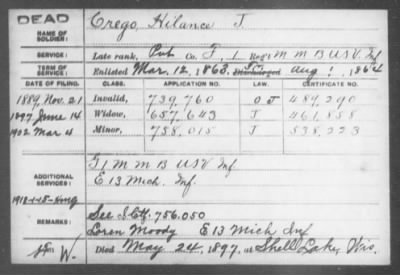 DEAD
NAME OF SOLDIER: Crego, Hilance J.
SERVICE: Late rank, Pvt Co. I, 1 Regt M M B U S V. Inf
TERM OF SERVICE: Enlisted Mar. 12, 1863, Discharged Aug 1, 1864
DATE OF FILING. CLASS. APPLICATION NO. LAW. CERTIFICATE NO.
1889, Nov. 21 Invalid, 739,760 O J 489,290
1897 June 14 Widow, 657,643 J 461,858
1902 Mar 4 Minor, 758,015 J 538,223
ADDITIONAL SERVICES: G 1 M M B U S V Inf
E 13 Mich. Inf.
REMARKS: See 756.050
Loren Moody E 13 Mich Inf
W. Died May 24, 1897, at Shell Lake, Wis.